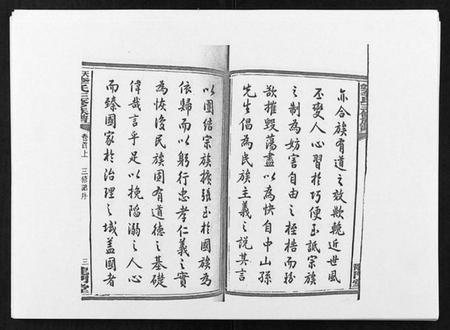 亦合族有道之效歟輓近世風
丕變人心習於巧便至詆宗族
之制為妨害自由之桎梏而務
欲摧毀蕩盡以為快自中山孫
先生倡為民族主義之說其言
以團結宗族擴張至於國族為
依歸而以躬行忠孝仁義之實
為恢復民族固有道德之基礎
偉哉言乎足以挽陷溺之人心
而臻國家於治理之域蓋國者
氏三修族譜 卷首上 三修譜序 三 堂